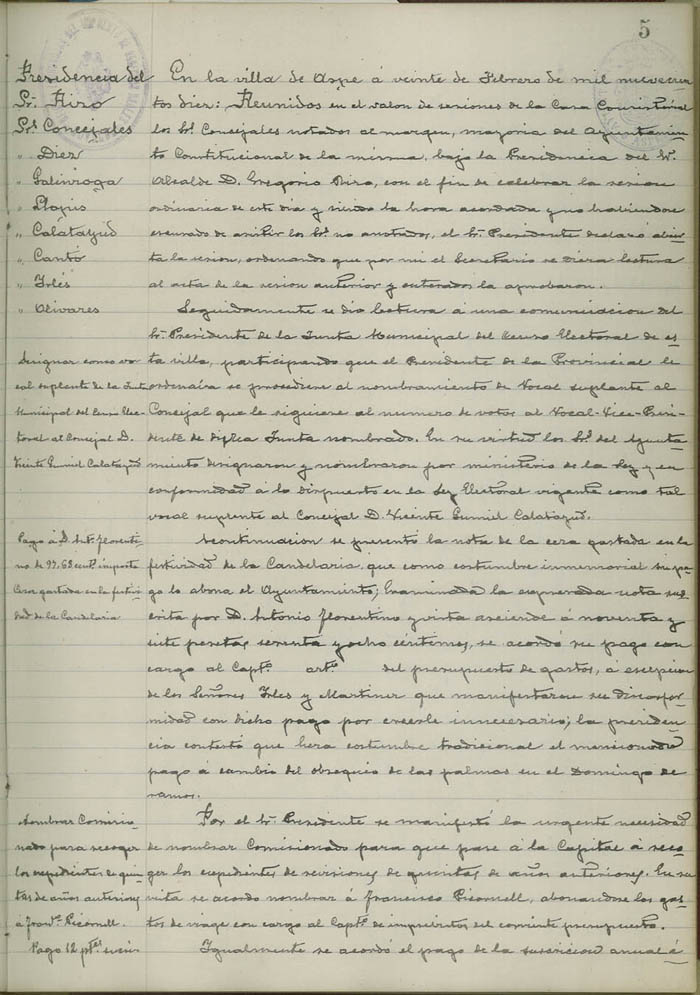 5
Presidencia del
Sr. Piro
Sres. Concejales
" Diez
" Galinsoga
" Llopis
" Calatayud
" Cantó
" Irlés
" Olivares
En la villa de Aspe á veinte de Febrero de mil nuevecien
tos diez: Reunidos en el salon de sesiones de la Casa Consistorial
los Srs. Concejales notados al margen, mayoria del Ayuntamien
to Constitucional de la misma, bajo la Presidencia del Sr.
Alcalde D. Gregorio Piro, con el fin de celebrar la sesion
ordinaria de este dia y siendo la hora acordada y no habiendose
escusado de asistir los Srs. no anotados, el Sr. Presidente declaró abier
ta la sesion, ordenando que por mi el Secretario se diera lectura
al acta de la sesion anterior y enterados la aprobaron.
Designar como vo
cal suplente de la Junta
Municipal del Censo Elec-
toral al Concejal D.
Vicente Gumiel Calatayud
Seguidamente se dio lectura á una comunicacion del
Sr. Presidente de la Junta Municipal del Censo Electoral de es
ta villa, participando que el Presidente de la Provincial le
ordenaba se procediera al nombramiento de Vocal suplente al
Concejal que le siguiese al numero de votos al Vocal-Vice-Presi-
dente de dicha Junta nombrado. En su virtud los Srs. del Ayunta-
miento designaron y nombraron por ministerio de la Ley y en
conformidad á lo dispuesto en la Ley Electoral vigente como tal
vocal suplente al Concejal D. Vicente Gumiel Calatayud.
Pago á D. Anto. Florenti-
no de 97,68 cents. importe
Cera gastada en la festivi-
dad de la Candelaria
Acontinuacion se presentó la nota de la cera gastada en la
festividad de la Candelaria que como costumbre inmemorial su pa-
go lo abona el Ayuntamiento; Examinada la espresada nota sus-
crita por D. Antonio Florentino y vista asciende á noventa y
siete pesetas sesenta y ocho centimos, se acordó su pago con
cargo al Capto. arto. del presupuesto de gastos, á escepcion
de los Señores Irles y Martinez que manifestaron su disconfor-
midad con dicho pago por creerle innecesario; la presiden-
cia contestó que hera costumbre tradicional el mencionado
pago á cambio del obsequio de las palmas en el Domingo de
ramos.
Nombrar Comisio-
nado para recoger
los espedientes de quin-
tas de años anteriores
á Franco. Picornell.
Por el Sr. Presidente se manifestó la urgente necesidad
de nombrar Comisionado para que pase á la Capital á reco-
ger los espedientes de revisiones de quintas de años anteriores. En su
vista se acordo nombrar á Francisco Picornell, abonandose los gas-
tos de viage con cargo al Capto. de imprevistos del corriente presupuesto.
Pago 12 ptas. suscri-
Igualmente se acordó el pago de la suscricion anual á